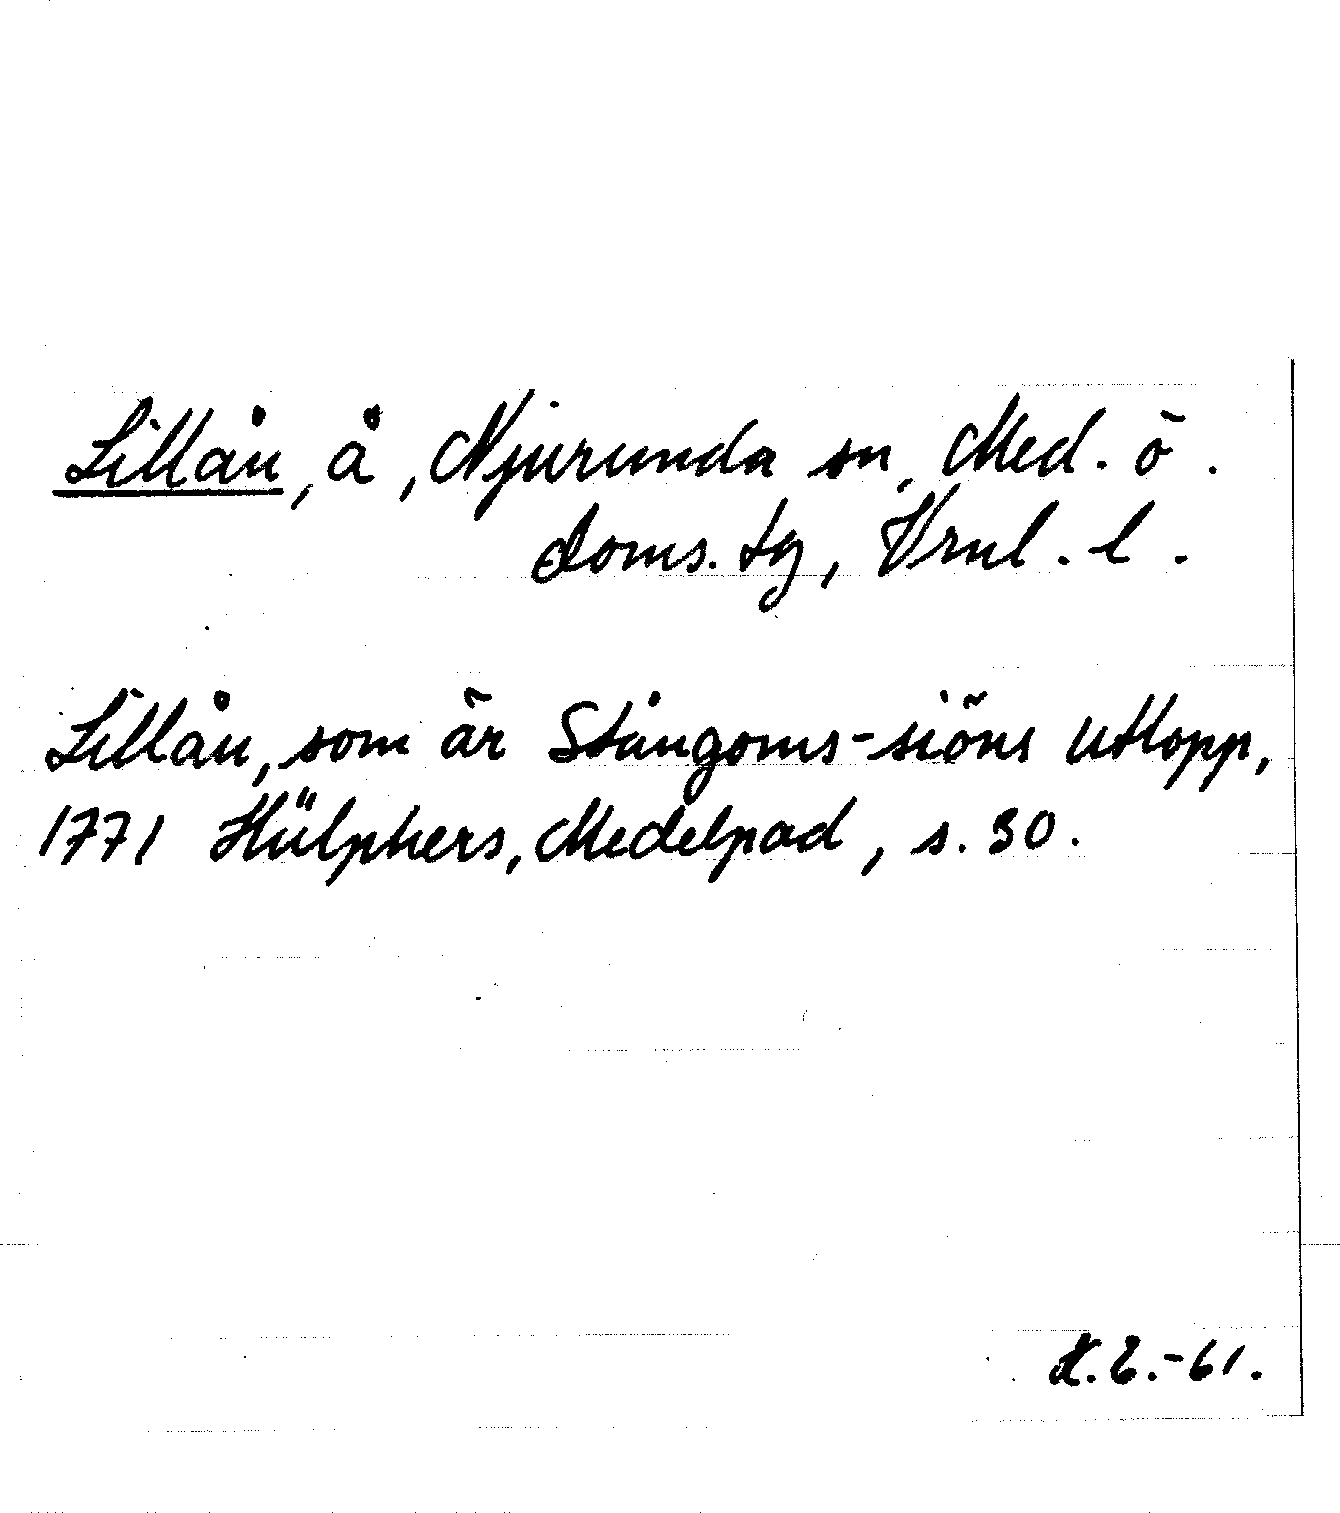 Lillån, å, Njurunda sn, Med. ö.
doms. tg, Vrnl. l.
Lillån, som är Stångoms-siöns utlopp,
1771 Hülphers, Medelpad, s. 30.
K.E.-61.